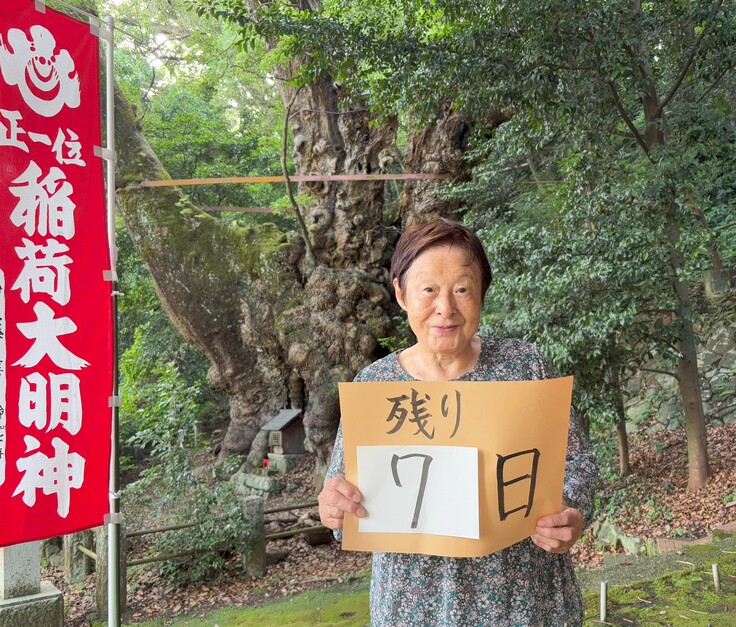 正一位
稲荷大明神
残り
7日